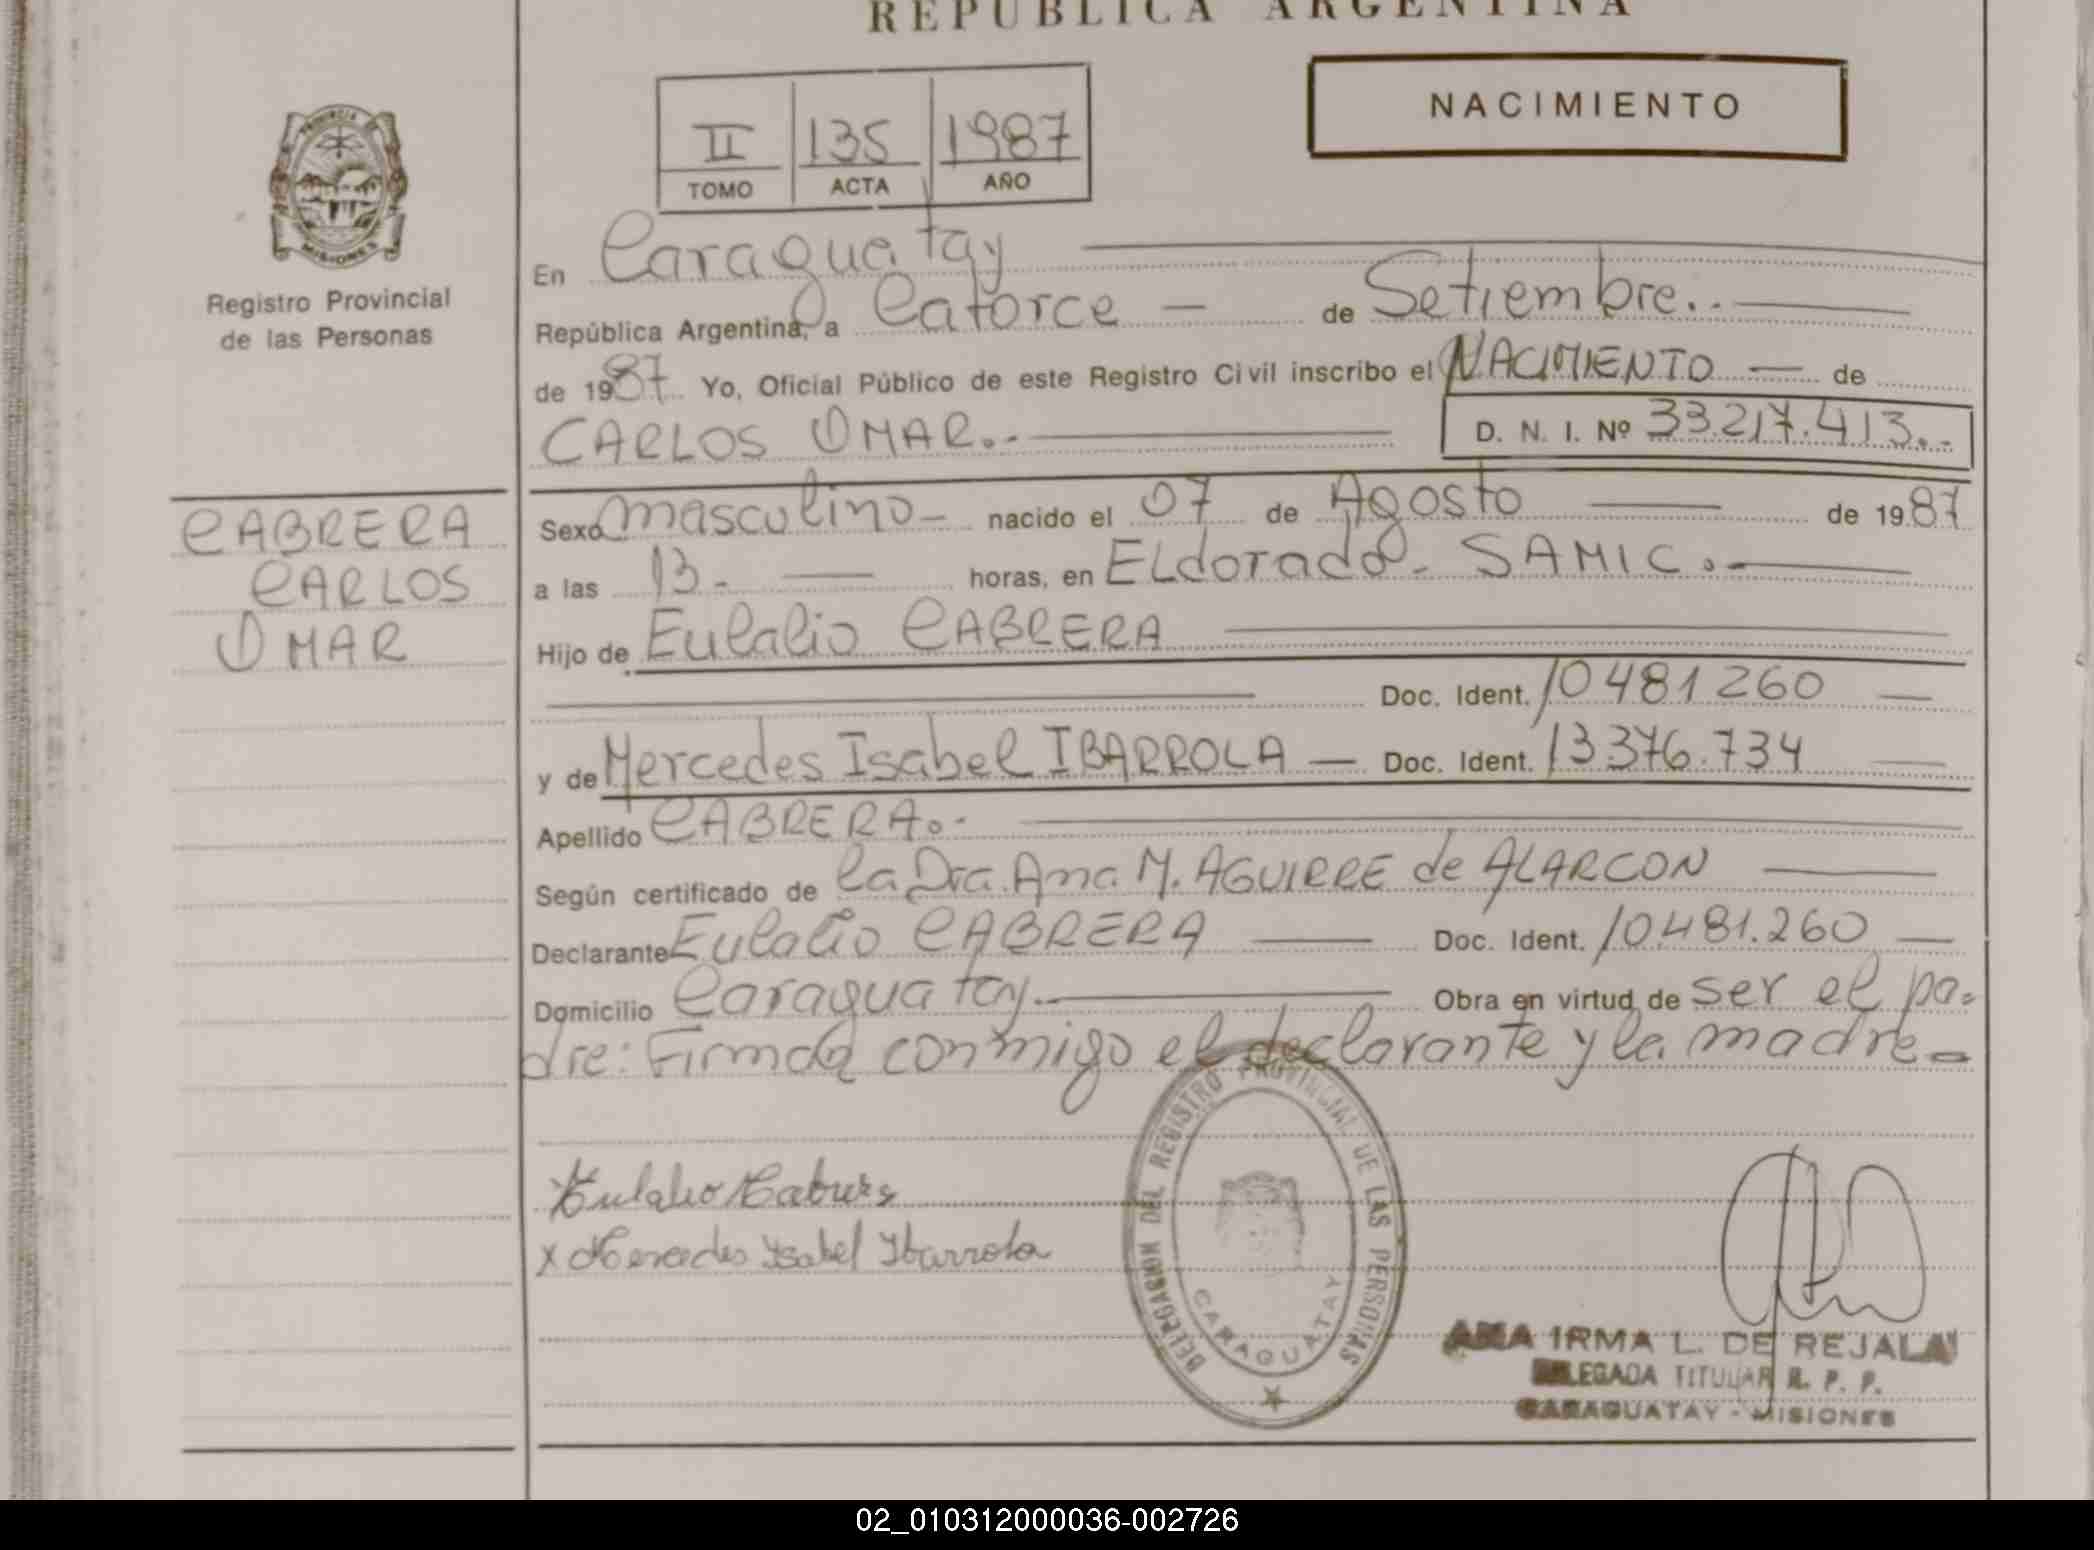 REPUBLICA ARGENTINA
NACIMIENTO
II 135 1987
TOMO ACTA AÑO
PROVINCIA DE
MISIONES
Registro Provincial
de las Personas
En Caraguatay
República Argentina, a Catorce — de Setiembre.
de 1987 Yo, Oficial Público de este Registro Civil inscribo el NACIMIENTO — de
CARLOS OMAR.- D. N. I. Nº 33.217.413..-
CABRERA
CARLOS
OMAR
Sexo masculino - nacido el 07 de Agosto de 1987
a las 13.- horas, en ELdorado. SAMIC.-
Hijo de Eulalio CABRERA
Doc. Ident. 10481260 —
y de Mercedes Isabel IBARROLA — Doc. Ident. 13376.734
Apellido CABRERA.-
Según certificado de la Dra. Ana M. AGUIRRE de ALARCON
Declarante Eulalio CABRERA Doc. Ident. 10.481.260 —
Domicilio Caraguatay.- Obra en virtud de ser el pa-
dre: Firman conmigo el declarante y la madre.-
Eulalio Cabrera
x Mercedes Ysabel Ybarrola
DELEGACION DEL REGISTRO PROVINCIAL DE LAS PERSONAS
CARAGUATAY
ANA IRMA L. DE REJALA
DELEGADA TITULAR R. P. P.
CARAGUATAY - MISIONES
02_010312000036-002726